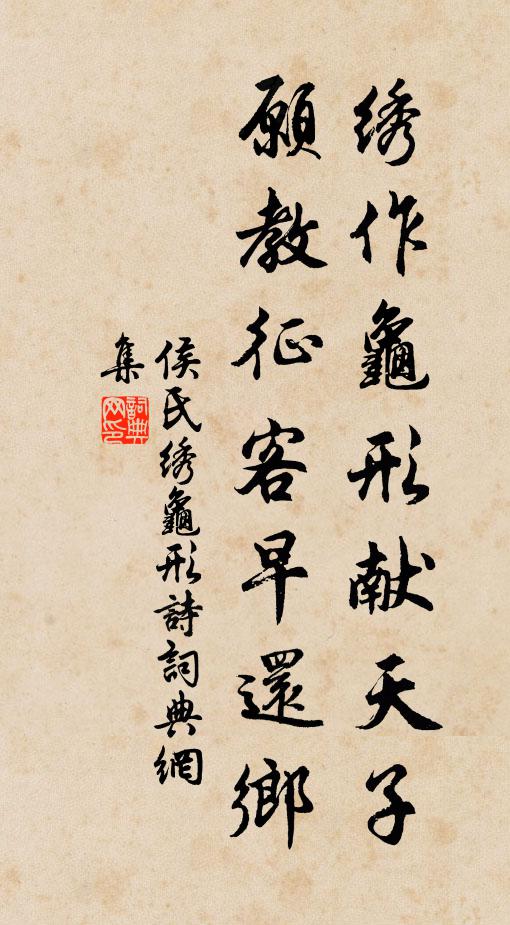 绣作龜形献天子
願教征客早還鄉
侯氏绣龜形詩詞典網
集
詞典網印